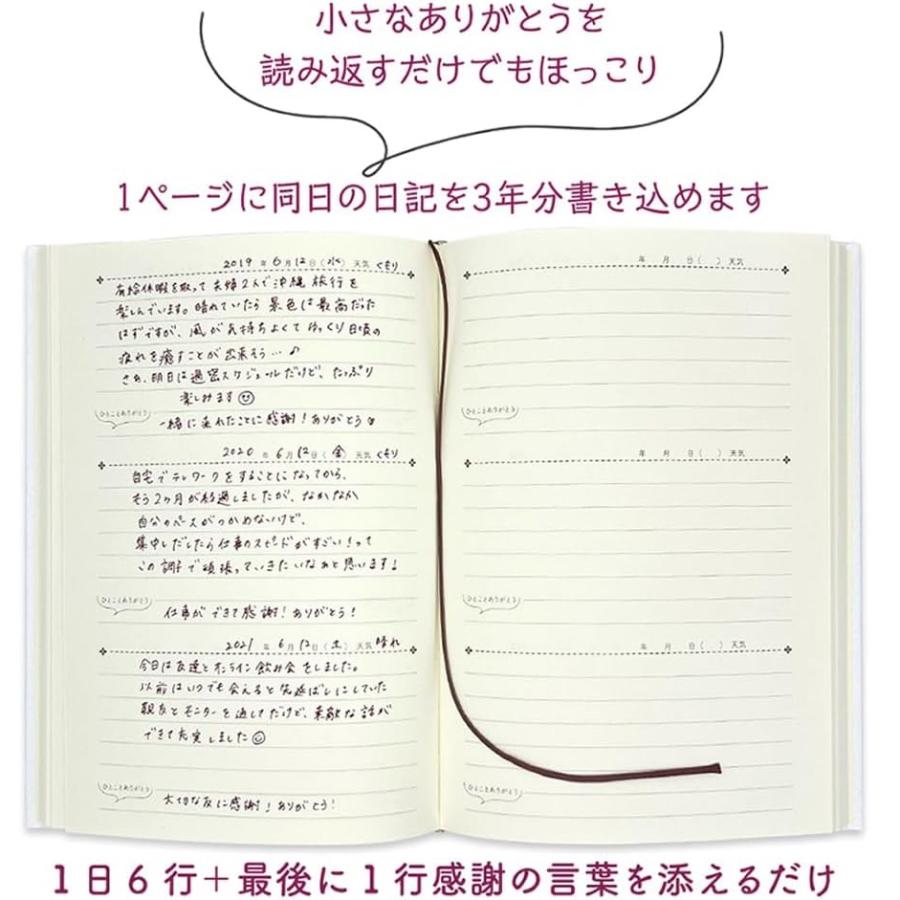 小さなありがとうを
読み返すだけでもほっこり
1ページに同日の日記を3年分書き込めます
2019年6月12日(水)天気 くもり
有給休暇を取って夫婦2人で沖縄旅行を
楽しんでいます。晴れていたら景色は最高だった
はずですが、風が気持ちよくてゆっくり日頃の
疲れを癒すことが出来そう…♪
さぁ、明日は過密スケジュールだけど、たっぷり
楽しみます
ひとことありがとう
一緒に来れたことに感謝!ありがとう
2020年6月12日(金)天気 くもり
自宅でテレワークをすることになってから、
もう2ヶ月が経過しましたが、なかなか
自分のペースがつかめないけど、
集中しだしたら仕事のスピードがすごい!って
この調子で頑張っていきたいなぁと思います!
ひとことありがとう
仕事ができて感謝!ありがとう!
2021年6月12日(土)天気 晴れ
今日は友達とオンライン飲み会をしました。
以前はいつでも会えると先延ばしにしていた
親友とモニターを通してだけど、素敵な話が
できて充実しました
ひとことありがとう
大切な友に感謝!ありがとう!
年 月 日( ) 天気
ひとことありがとう
年 月 日( ) 天気
ひとことありがとう
年 月 日( ) 天気
ひとことありがとう
1日6行+最後に1行感謝の言葉を添えるだけ